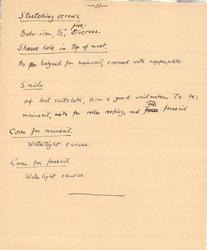 - 11 -
Stretching screws.
Galv. iron, 5/8", Five screws.
Sheave hole in top of mast.
to halyard for mainsail, covered with copperplate.
Sails
of best sailcloth, from a good sailmaker. To be:
mainsail, made for roller reefing, and foresail
Cover for mainsail.
Watertight canvas.
Cover for foresail
Watertight canvas